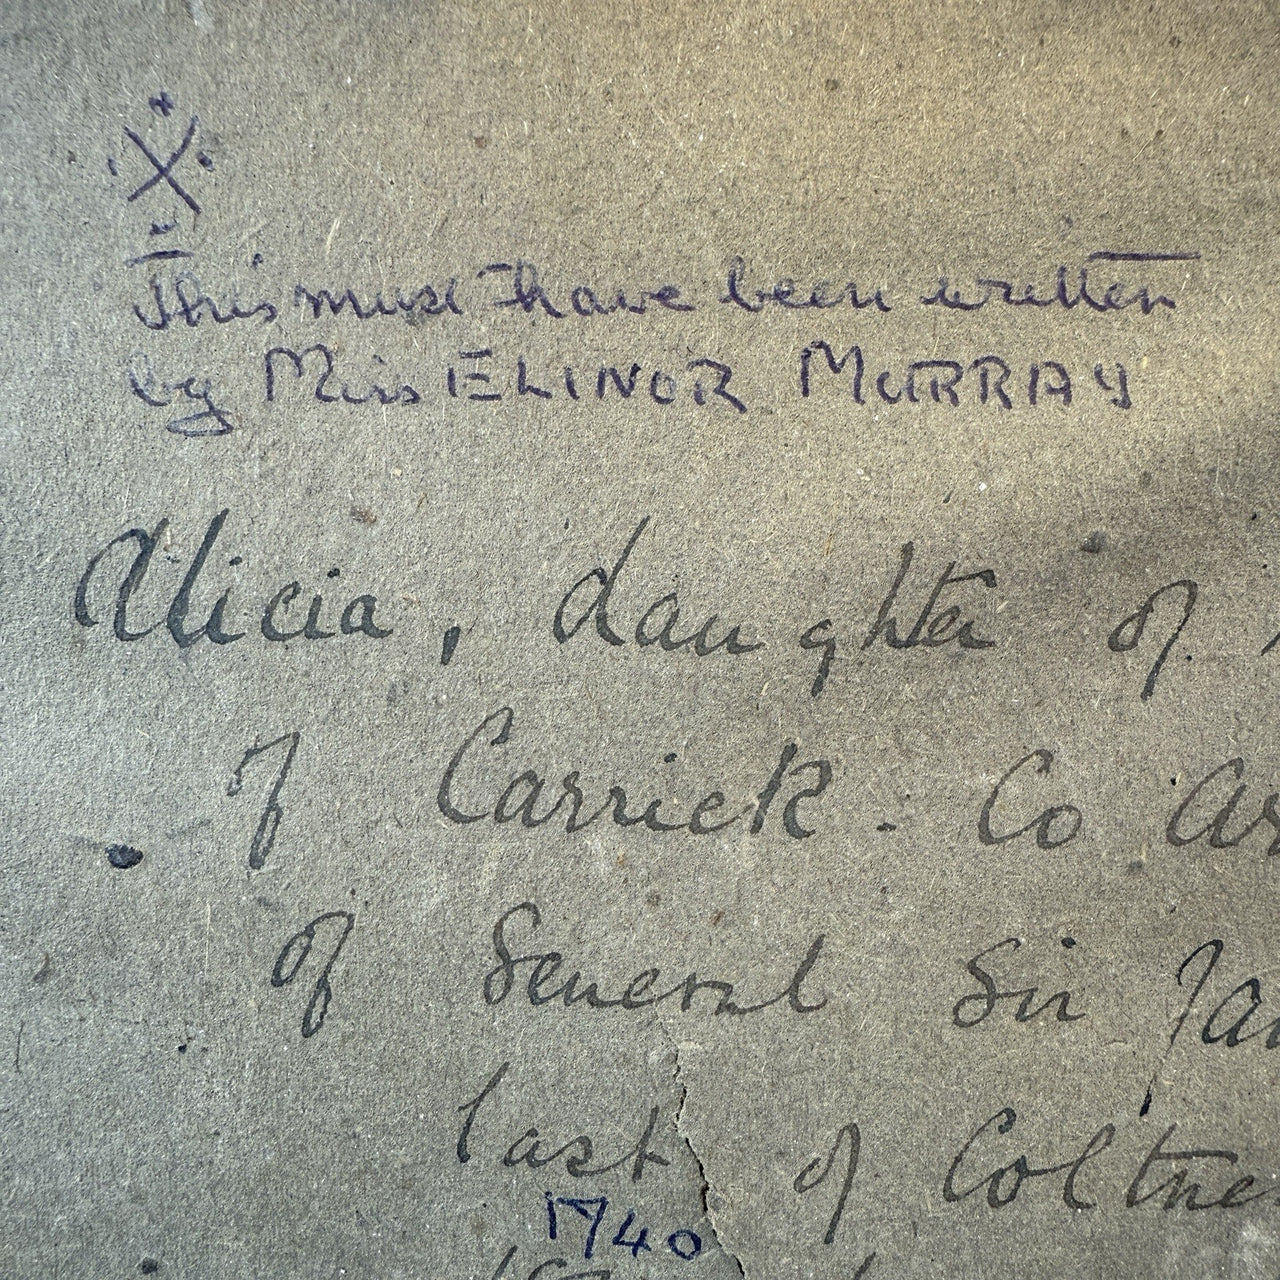 This must have been written
by Miss ELINOR MURRAY
Alicia, daughter of
of Carrick. Co
of General Sir
last of
1740